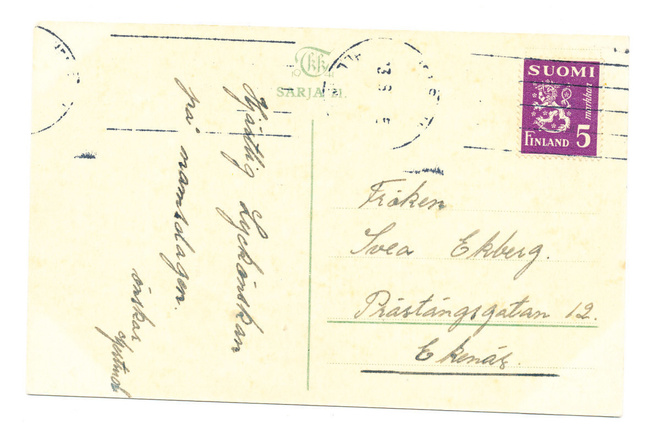 SARJA
SUOMI
markkaa
FINLAND 5
Hjärtlig Lyckönskan
på namnsdagen.
önskar
Fröken
Svea Ekberg.
Prästängsgatan 12.
Ekenäs.